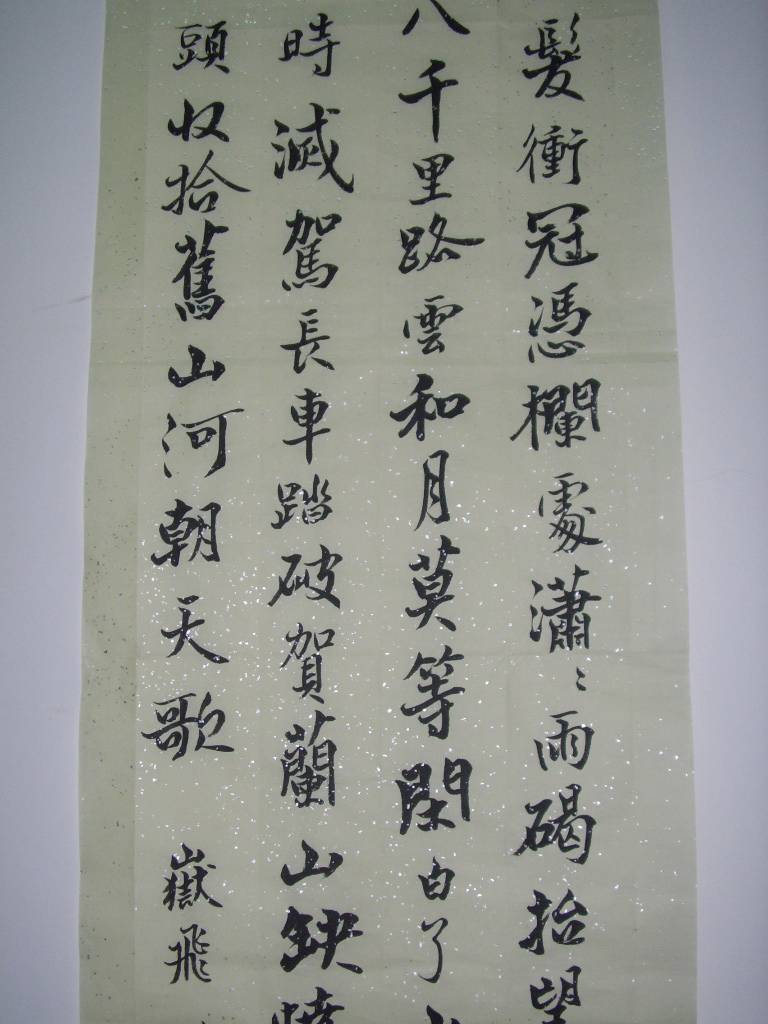 髮衝冠憑欄處瀟〻雨碣抬望
八千里路雲和月莫等閑白了
時滅駕長車踏破賀蘭山缺
頭收拾舊山河朝天歌 嶽飛